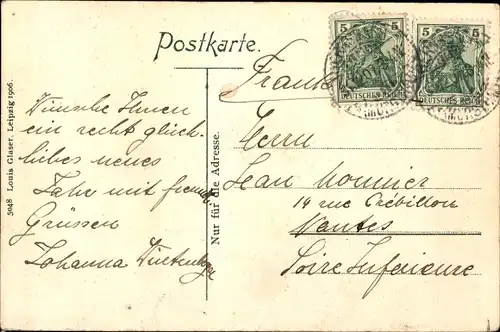 Postkarte.
5 5
DEUTSCHES REICH DEUTSCHES REICH
Frank
Wünsche Ihnen
ein recht glück-
liches neues
Jahr mit freundl.
Grüssen
Johanna
5048 Louis Glaser, Leipzig 1906.
Nur für die Adresse.
Herrn
Jean Monnier
14 rue Crébillon
Nantes
Loire Inferieure